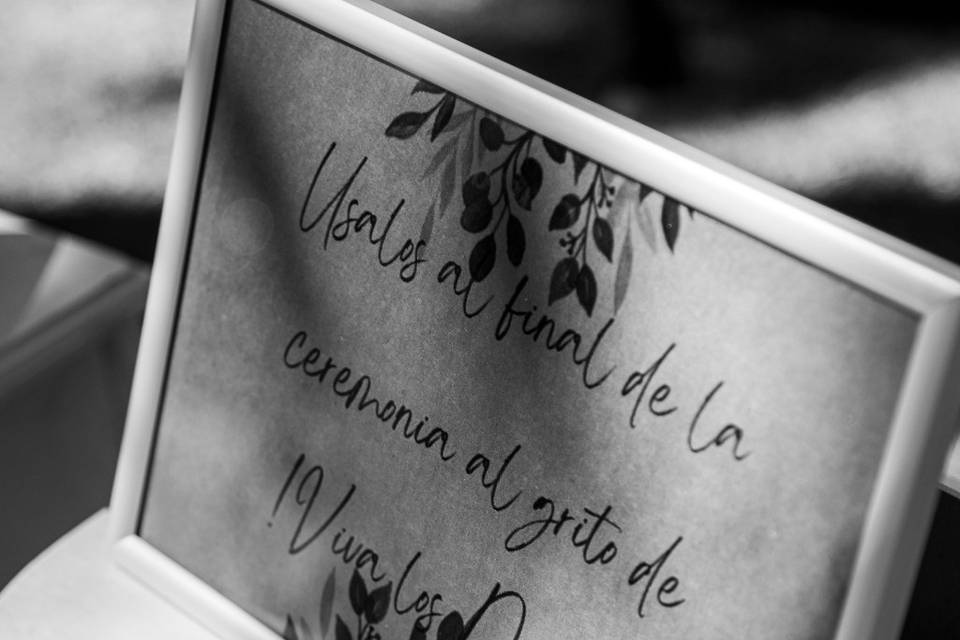 Usalos al final de la
ceremonia al grito de
!Viva los